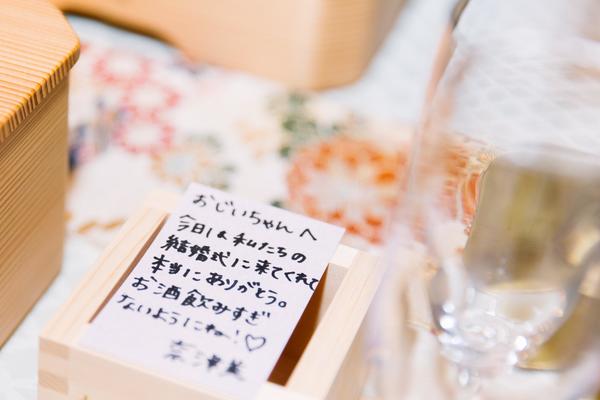 おじいちゃんへ
今日は私たちの
結婚式に来てくれて
本当にありがとう。
お酒飲みすぎ
ないようにね!♡
奈津美